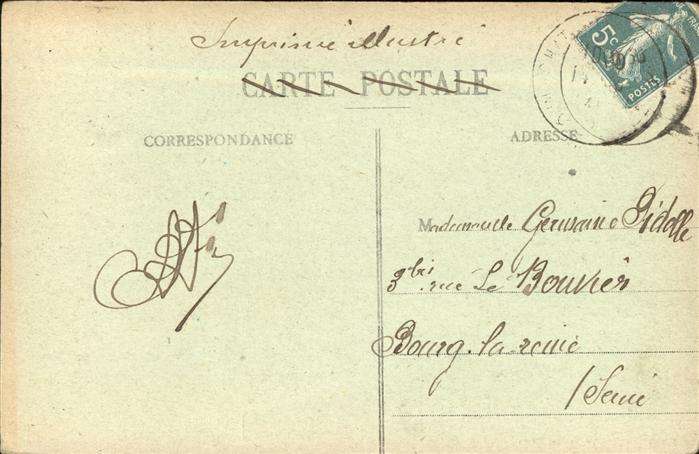 Imprimé illustré
CARTE POSTALE
CORRESPONDANCE
ADRESSE
5c
POSTES
Mademoiselle Germaine Pidolle
3bis rue Le Bouvier
Bourg-la-reine
/Seine